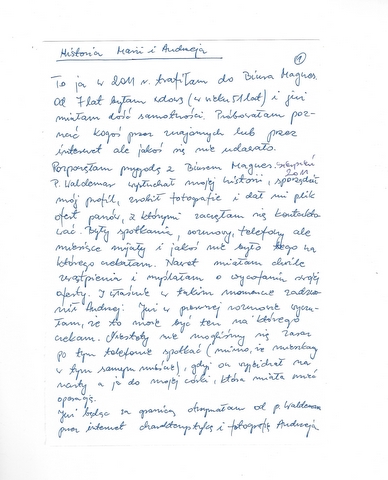 Historia Marii i Andrzeja
1
To ja w 2011 r. trafiłam do Biura Magnes.
Od 7 lat byłam wdową (w wieku 51 lat) i już
miałam dość samotności. Próbowałam poz-
nać kogoś przez znajomych lub przez
internet ale jakoś się nie udawało.
Rozpoczęłam przygodę z Biurem Magnes. sierpień
2011
P. Waldemar wysłuchał mojej historii, sporządził
mój profil, zrobił fotografie i dał mi plik
ofert panów, z którymi zaczęłam się kontakto
wać. Były spotkania, rozmowy, telefony ale
miesiące mijały i jakoś nie było tego na
którego czekałam. Nawet miałam chwile
zwątpienia i myślałam o wycofaniu swojej
oferty. I właśnie w takim momencie zadzwo
nił Andrzej. Już w pierwszej rozmowie wyczu
łam, że to może być ten na którego
czekam. Niestety nie mogliśmy się zaraz
po tym telefonie spotkać (mimo, że mieszkamy
w tym samym mieście), gdyż on wyjeżdżał na
narty a ja do mojej córki, która miała mieć
operację.
Już będąc za granicą otrzymałam od p. Waldemara
przez internet charakterystykę i fotografię Andrzeja